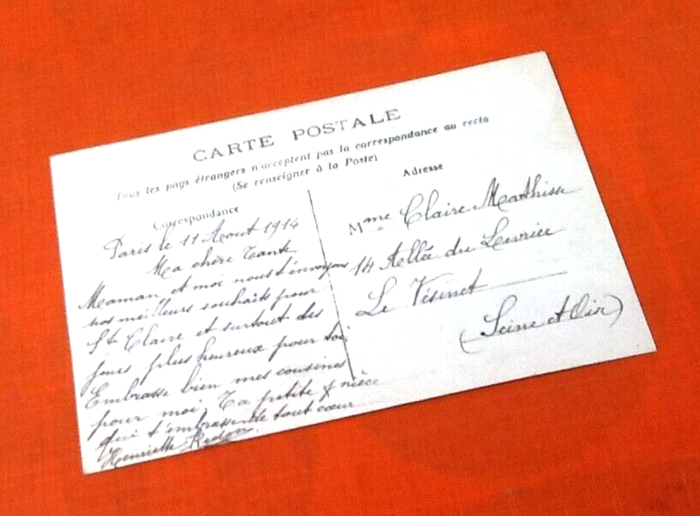 CARTE POSTALE
Tous les pays étrangers n'acceptent pas la correspondance au recto
(Se renseigner à la Poste)
Correspondance
Paris le 11 Aout 1914
Ma chère Tante
Maman et moi nous t'envoyons
nos meilleurs souhaits pour
Ste Claire et surtout des
jours plus heureux pour toi.
Embrasse bien mes cousines
pour moi. Ta petite nièce
qui t'embrasse de tout cœur
Henriette
Adresse
Mme Claire Mathisse
14 Allée du Levrier
Le Vésinet
(Seine et Oise)